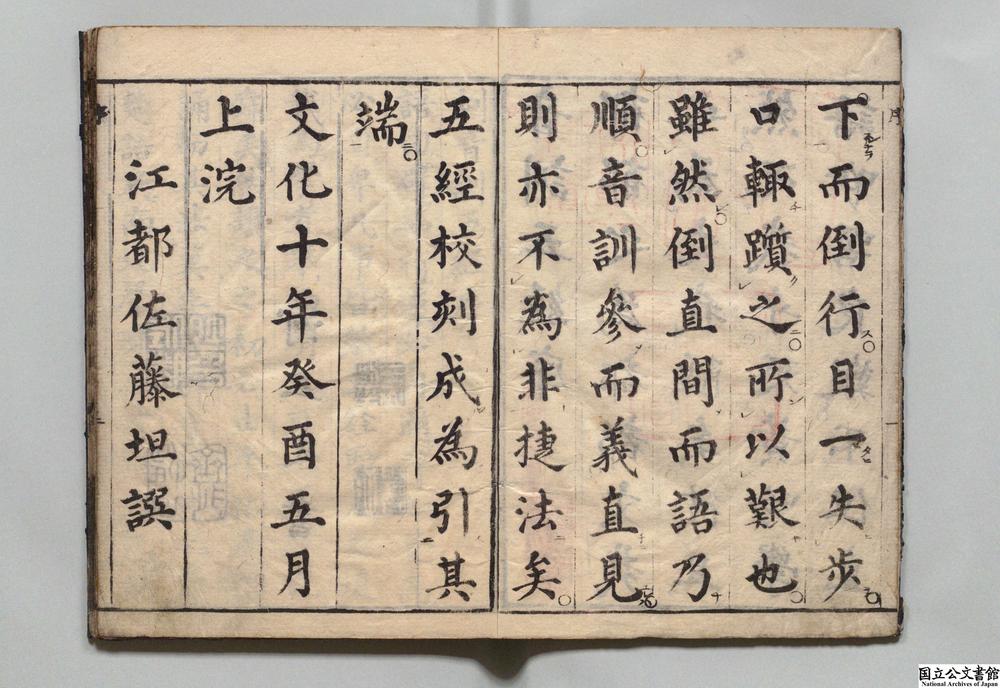 下而倒行目一失步
口輙躓之所以艱也
雖然倒直間而語乃
順音訓參而義直見
則亦不為非捷法矣
五經校刻成為引其
端
文化十年癸酉五月
上浣
江都佐藤坦譔
国立公文書館
National Archives of Japan